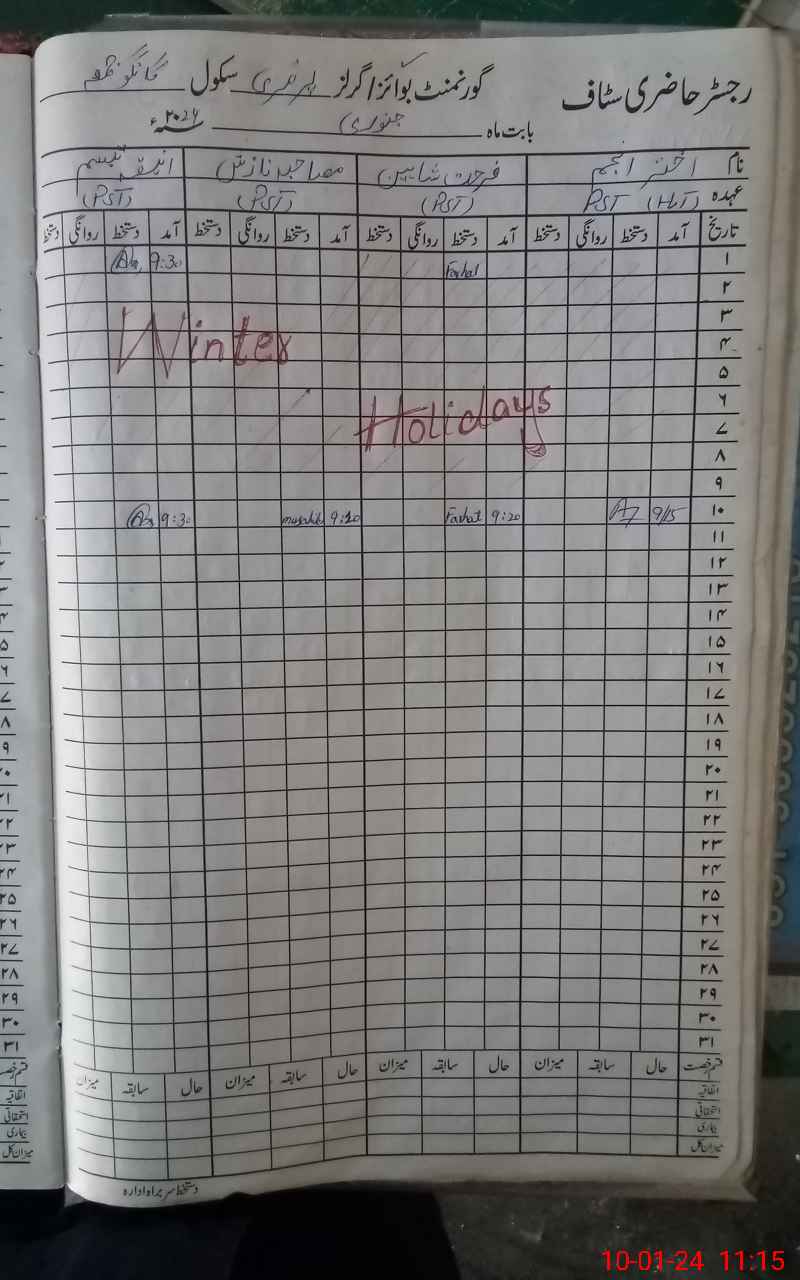 رجسٹر حاضری سٹاف گورنمنٹ بوائز / گرلز پرائمری سکول
بابت ماہ جنوری ۲۰24ء
نام اختر انجم فرحت شاہین مصاحبہ نازش انیقہ تبسم
عہدہ PST (HT) (PST) (PST) (PST)
تاریخ آمد دستخط روانگی دستخط آمد دستخط روانگی دستخط آمد دستخط روانگی دستخط آمد دستخط روانگی دستخط
۱ Farhat 9:30
۲
۳
Winter
۴
۵
۶
Holidays
۷
۸
۹
۱۰ 9/15 9:20 Farhat 9:20 musahib 9:30
۱۱
۱۲
۱۳
۱۴
۱۵
۱۶
۱۷
۱۸
۱۹
۲۰
۲۱
۲۲
۲۳
۲۴
۲۵
۲۶
۲۷
۲۸
۲۹
۳۰
۳۱
قسم رخصت حال سابقہ میزان حال سابقہ میزان حال سابقہ میزان حال سابقہ میزان
اتفاقیہ
استحقاقی
بیماری
میزان کل
دستخط سربراہ ادارہ
10-01-24 11:15